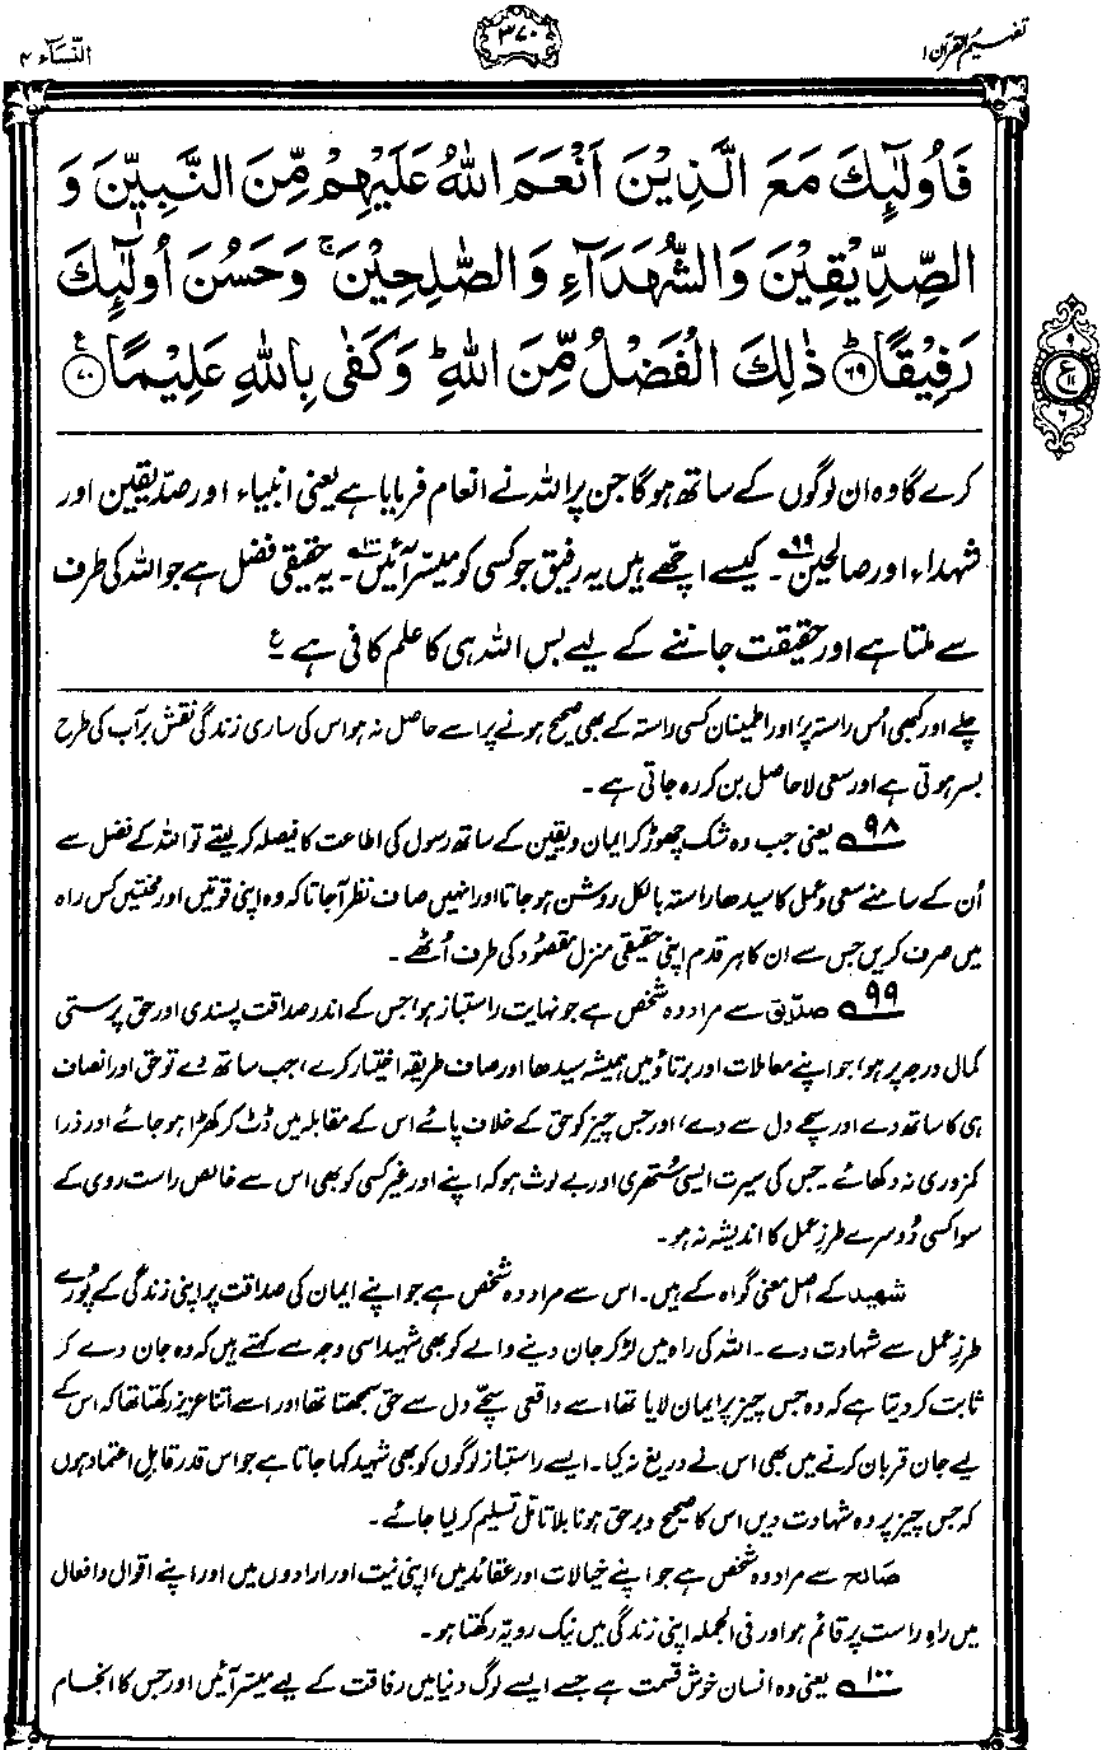 تفہیم القرآن ۱
۳۷۰
النِّسَآء ۴
فَاُولٰٓئِكَ مَعَ الَّذِيْنَ اَنْعَمَ اللّٰهُ عَلَيْهِمْ مِّنَ النَّبِيّٖنَ وَ
الصِّدِّيْقِيْنَ وَالشُّهَدَآءِ وَالصّٰلِحِيْنَ ۚ وَحَسُنَ اُولٰٓئِكَ
رَفِيْقًا ؕ۶۹ ذٰلِكَ الْفَضْلُ مِنَ اللّٰهِ ؕ وَكَفٰى بِاللّٰهِ عَلِيْمًا ۷۰ ع
۹
ع
۱۱
۶
کرے گا وہ ان لوگوں کے ساتھ ہوگا جن پر اللہ نے انعام فرمایا ہے یعنی انبیاء اور صدّیقین اور
شہداء اور صالحین۹۹۔ کیسے اچھّے ہیں یہ رفیق جو کسی کو میسّر آئیں۱۰۰۔ یہ حقیقی فضل ہے جو اللہ کی طرف
سے ملتا ہے اور حقیقت جاننے کے لیے بس اللہ ہی کا علم کافی ہے ع
چلے اور کبھی اُس راستہ پر، اور اطمینان کسی راستہ کے بھی صحیح ہونے پر اسے حاصل نہ ہو اس کی ساری زندگی نقش برآب کی طرح
بسر ہوتی ہے اور سعی لاحاصل بن کر رہ جاتی ہے۔
۹۸ یعنی جب وہ شک چھوڑ کر ایمان و یقین کے ساتھ رسول کی اطاعت کا فیصلہ کر لیتے تو اللہ کے فضل سے
اُن کے سامنے سعی و عمل کا سیدھا راستہ بالکل روشن ہو جاتا اور انہیں صاف نظر آجاتا کہ وہ اپنی قوتیں اور محنتیں کس راہ
میں صرف کریں جس سے ان کا ہر قدم اپنی حقیقی منزلِ مقصُود کی طرف اُٹھے۔
۹۹ صدّیق سے مراد وہ شخص ہے جو نہایت راستباز ہو، جس کے اندر صداقت پسندی اور حق پرستی
کمال درجہ پر ہو، جو اپنے معاملات اور برتاؤ میں ہمیشہ سیدھا اور صاف طریقہ اختیار کرے، جب ساتھ دے تو حق اور انصاف
ہی کا ساتھ دے اور سچے دل سے دے، اور جس چیز کو حق کے خلاف پائے اس کے مقابلہ میں ڈٹ کر کھڑا ہو جائے اور ذرا
کمزوری نہ دکھائے۔ جس کی سیرت ایسی سُتھری اور بے لوث ہو کہ اپنے اور غیر کسی کو بھی اس سے خالص راست روی کے
سوا کسی دُوسرے طرزِ عمل کا اندیشہ نہ ہو۔
شہید کے اصل معنی گواہ کے ہیں۔ اس سے مراد وہ شخص ہے جو اپنے ایمان کی صداقت پر اپنی زندگی کے پُورے
طرزِ عمل سے شہادت دے۔ اللہ کی راہ میں لڑ کر جان دینے والے کو بھی شہید اسی وجہ سے کہتے ہیں کہ وہ جان دے کر
ثابت کر دیتا ہے کہ وہ جس چیز پر ایمان لایا تھا اسے واقعی سچّے دل سے حق سمجھتا تھا اور اسے اتنا عزیز رکھتا تھا کہ اس کے
لیے جان قربان کرنے میں بھی اس نے دریغ نہ کیا۔ ایسے راستباز لوگوں کو بھی شہید کہا جاتا ہے جو اس قدر قابلِ اعتماد ہوں
کہ جس چیز پر وہ شہادت دیں اس کا صحیح و برحق ہونا بلا تامّل تسلیم کر لیا جائے۔
صَالح سے مراد وہ شخص ہے جو اپنے خیالات اور عقائد میں، اپنی نیت اور ارادوں میں اور اپنے اقوال و افعال
میں راہِ راست پر قائم ہو اور فی الجملہ اپنی زندگی میں نیک رویّہ رکھتا ہو۔
۱۰۰ یعنی وہ انسان خوش قسمت ہے جسے ایسے لوگ دنیا میں رفاقت کے لیے میسّر آئیں اور جس کا انجام